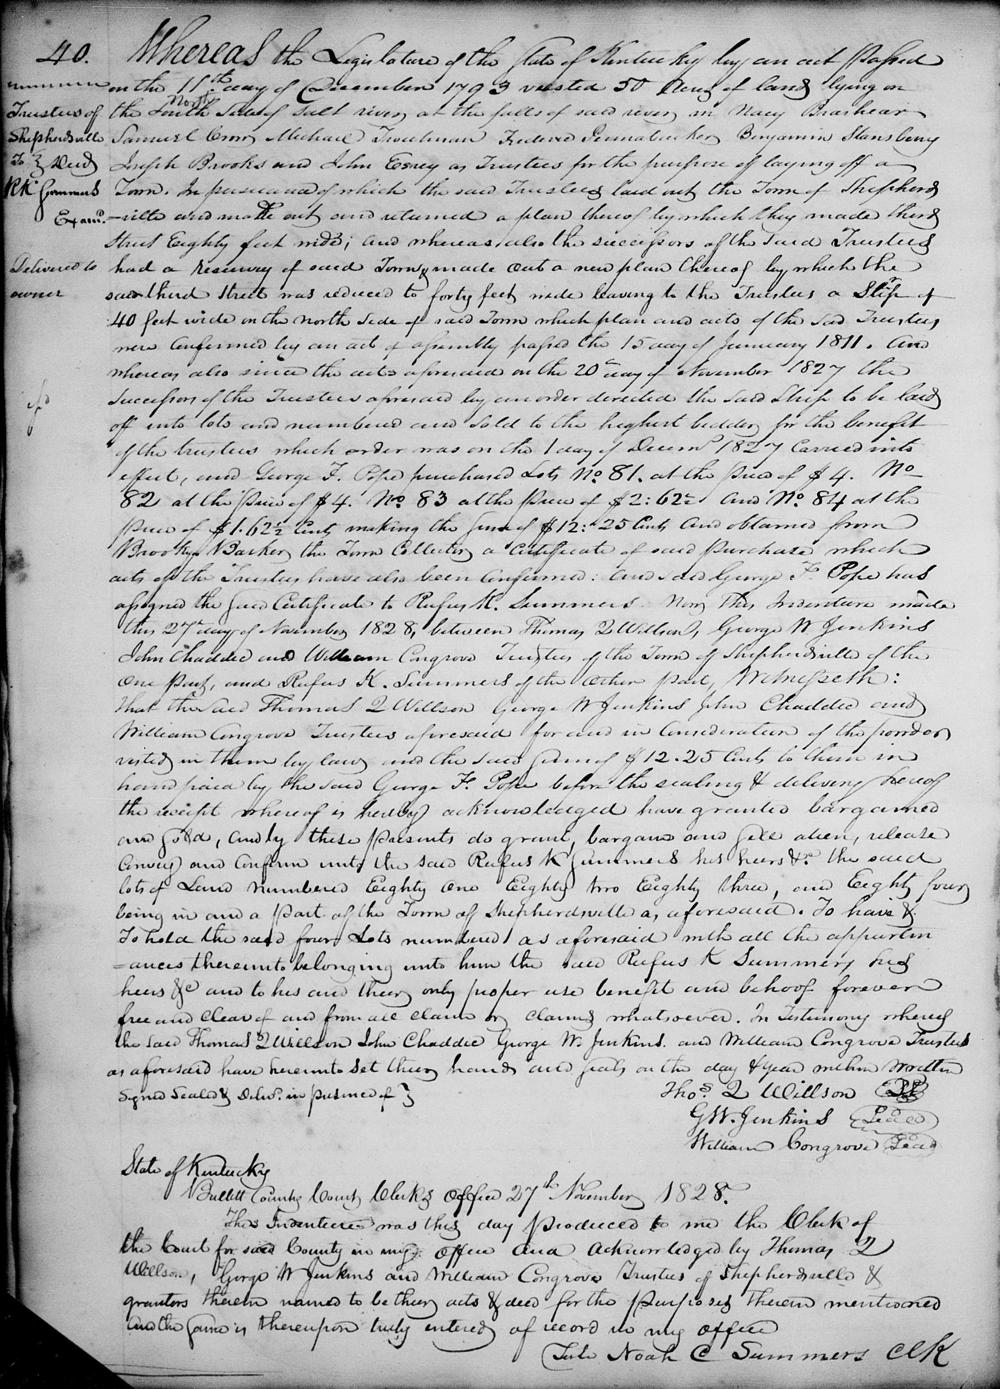 40.
Trustees of
Shepherdsville
To } Deed
R K Summers
Exam.
Delivered to
owner
Whereas the Legislature of the State of Kentucky by an act passed
on the 11th day of December 1793 vested 50 Acres of land lying on
the North Side of Salt river at the falls of said river in Nacy Brashear
Samuel Crow Michael Troutman Frederic Pennabecker Benjamin Stansbery
Joseph Brooks and John Essrey as Trustees for the purpose of laying off a
Town. In pursuance of which the said Trustees laid out the Town of Shepherds
-ville and made out and returned a plan thereof by which they made third
Street Eighty feet wide; and whereas also the successors of the said Trustees
had a Resurvey of said Town & made out a new plan thereof by which the
said third street was reduced to forty feet wide leaving to the Trustees a Slip of
40 feet wide on the North Side of said Town which plan and acts of the said Trustees
were Confirmed by an act of assembly passed the 15 day of January 1811. And
whereas also since the acts aforesaid on the 20th day of November 1827 the
Successors of the Trustees aforesaid by an order directed the said Slip to be laid
off into lots and numbered and sold to the highest bidder for the benefit
of the trustees which order was on the 1 day of Decemr 1827 Carried into
effect, and George F. Pope purchased Lots No 81. at the price of $4. No
82 at the price of $4. No 83 at the price of $2:62½ And No 84 at the
price of $1.62½ Cents making the sum of $12:25 Cents and obtained from
Brooks Barker the Town Collector a Certificate of said purchase which
acts of the Trustees have also been Confirmed: and said George F. Pope has
assigned the said Certificate to Rufus K. Summers. Now This Indenture made
this 27th day of November 1828, between Thomas Q Willson, George W Jenkins
John Chaddic and William Congrove Trustees of the Town of Shepherdsville of the
One part, and Rufus K. Summers of the other part, Witnesseth:
That the said Thomas Q Willson George W Jenkins John Chaddic and
William Congrove Trustees aforesaid for and in Consideration of the power
vested in them by law and the said sum of $12.25 Cents to them in
hand paid by the said George F. Pope before the sealing & delivery hereof
the receipt whereof is hereby acknowledged have granted bargained
and sold, and by these presents do grant, bargain and sell alien, release
Convey and Confirm unto the said Rufus K Summers his heirs &c the said
lots of Land numbered Eighty One Eighty two Eighty three, and Eighty four
being in and a part of the Town of Shepherdsville as aforesaid. To have &
To hold the said four Lots numbered as aforesaid with all the appurtin
=ances thereunto belonging unto him the said Rufus K Summers his
heirs &c and to his and their only proper use benefit and behoof forever
free and clear of and from all claim or claims whatsoever. In Testimony whereof
the said Thomas Q Willson John Chaddic George W. Jenkins and William Congrove Trustees
as aforesaid have hereunto set their hands and seals on the day & year within written
Signed Sealed & Delivd. in presence of }
Thos Q Willson Seal
G W. Jenkins Seal
William Congrove Seal
State of Kentucky
Bullitt County Court Clerks Office 27th November 1828.
This Indenture was this day produced to me the Clerk of
the Court for said County in my office and acknowledged by Thomas Q
Willson, George W Jenkins and William Congrove Trustees of Shepherdsville &
grantors therein named to be their acts & deed for the purposes therein mentioned
and the same is thereupon truly entered of record in my office
Teste Noah C Summers Clk